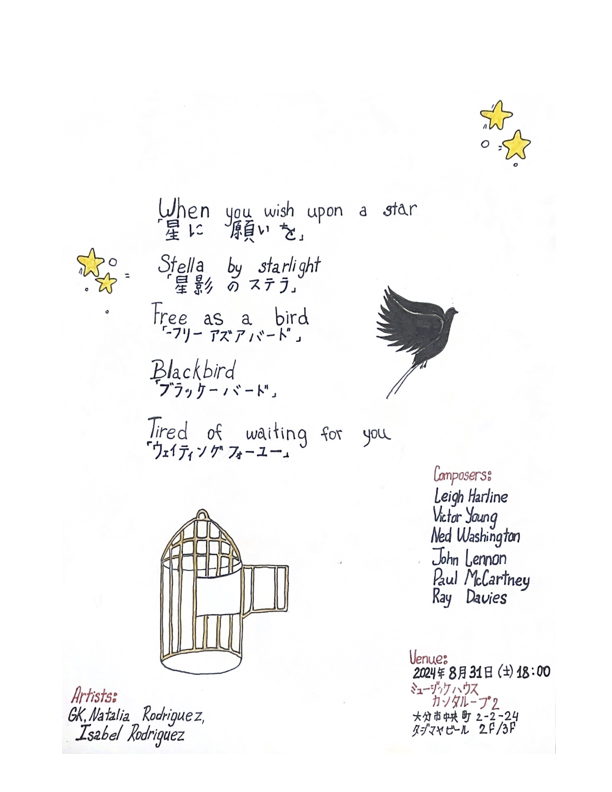 When you wish upon a star
「星に 願いを」
Stella by starlight
「星影 の ステラ」
Free as a bird
「フリー アズ ア バード」
Blackbird
「ブラッケーバード」
Tired of waiting for you
「ウェイティング フォー ユー」
Composers:
Leigh Harline
Victor Young
Ned Washington
John Lennon
Paul McCartney
Ray Davies
Artists:
GK, Natalia Rodriguez,
Isabel Rodriguez
Venue:
2024年 8月31日 (土) 18:00
ミュージックハウス
カンタループ2
大分市中央町 2-2-24
タジマヤビール 2F/3F